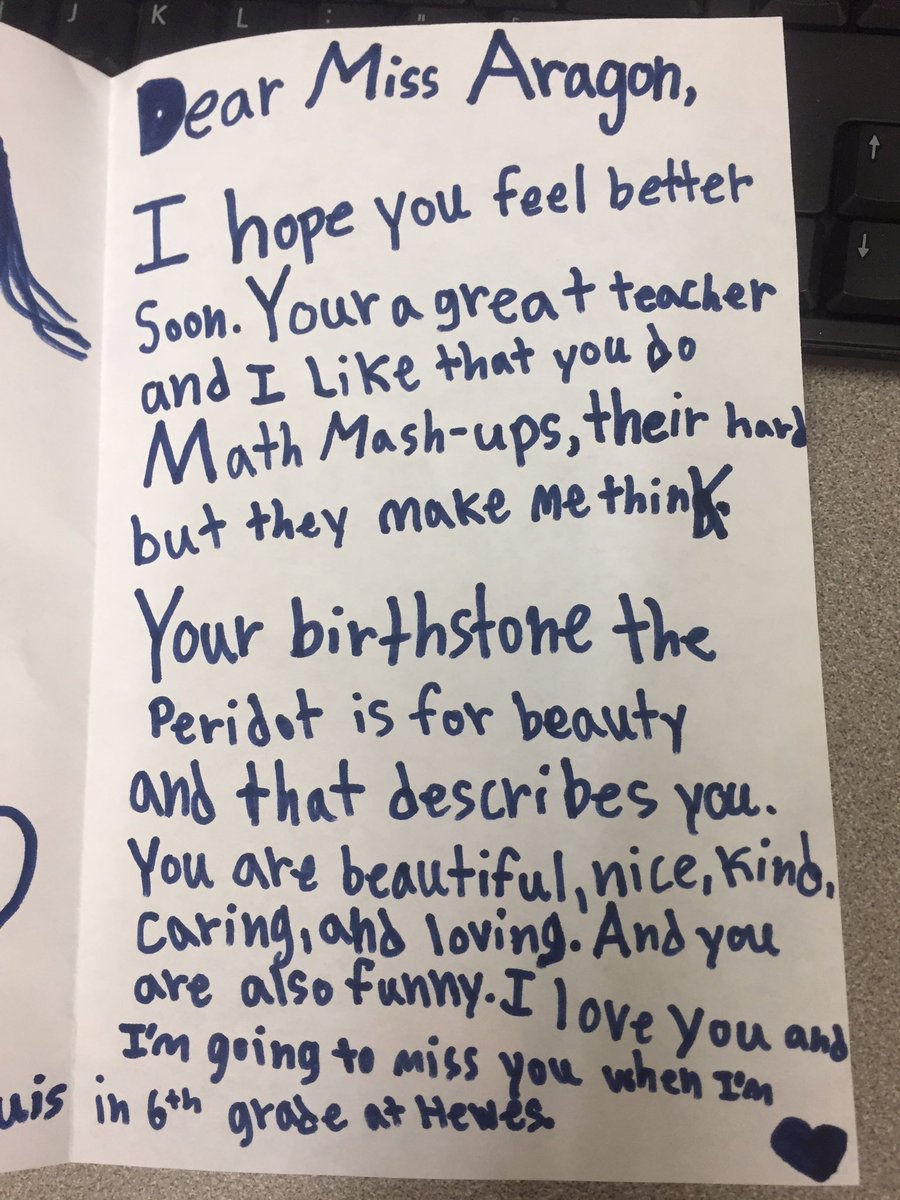 Dear Miss Aragon,
I hope you feel better
Soon. Your a great teacher
and I Like that you do
Math Mash-ups, their hard
but they make me think.
Your birthstone the
Peridot is for beauty
and that describes you.
You are beautiful, nice, kind,
caring, and loving. And you
are also funny. I love you and
I'm going to miss you when I'm
in 6th grade at Hewes.
uis
J K L : "
↑
↓